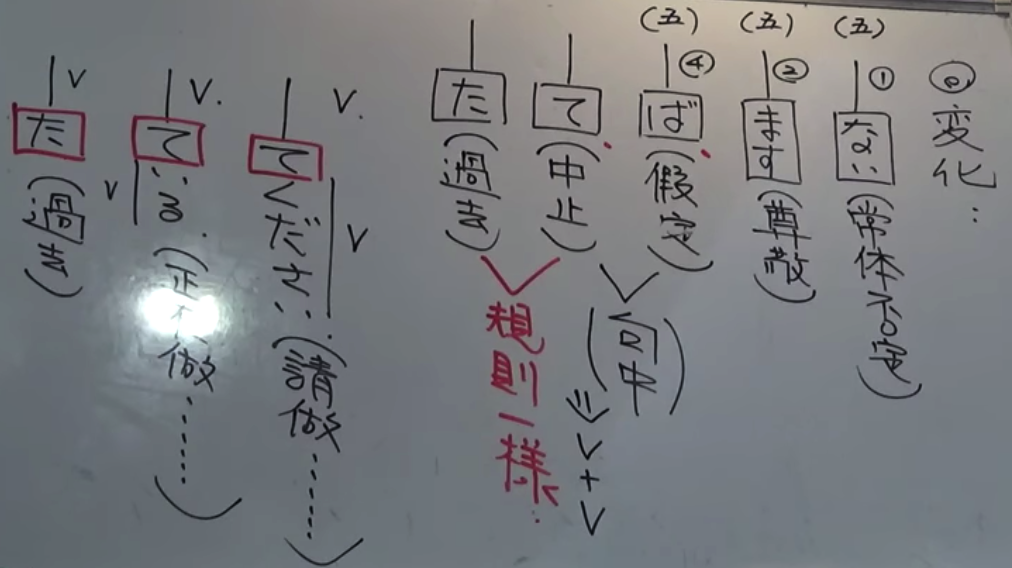 ◎変化：
(五)①ない(常体否定)
(五)②ます(尊敬)
(五)④ば(假定)
て(中止)
(句中)
⇓V+V
た(過去)
規則一樣.
V.てください.(請做……)
V
V.ている.(正在做……)
V
Vた(過去)